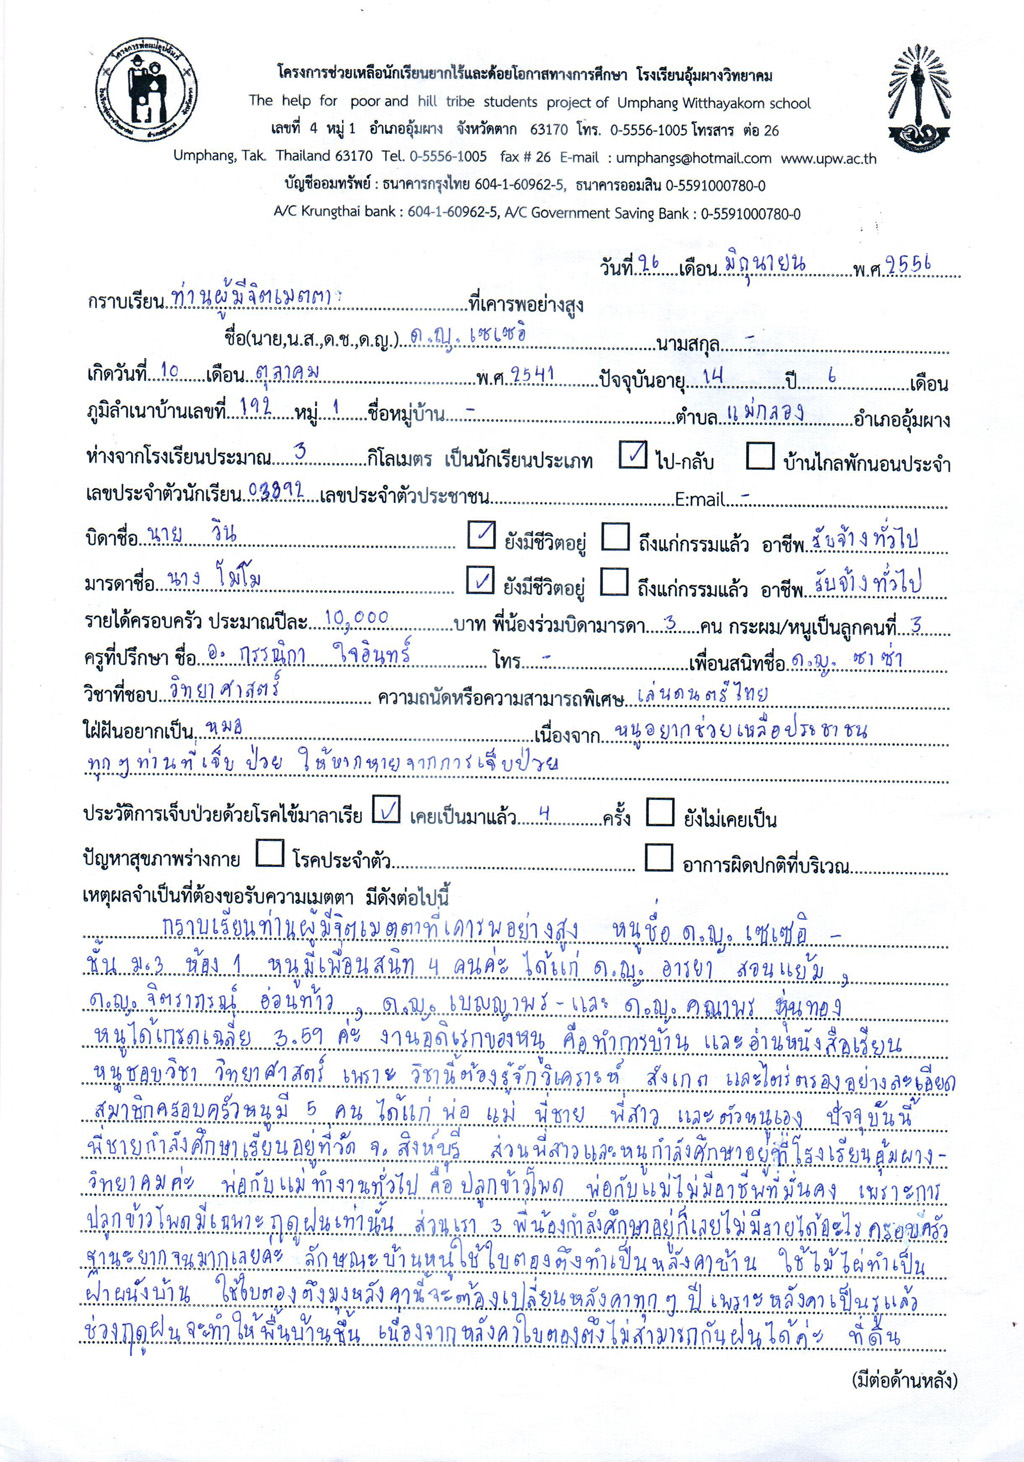 โครงการพ่อแม่อุปถัมภ์
โครงการช่วยเหลือนักเรียนยากไร้และด้อยโอกาสทางการศึกษา โรงเรียนอุ้มผางวิทยาคม
The help for poor and hill tribe students project of Umphang Witthayakom school
เลขที่ 4 หมู่ 1 อำเภออุ้มผาง จังหวัดตาก 63170 โทร. 0-5556-1005 โทรสาร ต่อ 26
Umphang, Tak. Thailand 63170 Tel. 0-5556-1005 fax # 26 E-mail : umphangs@hotmail.com www.upw.ac.th
บัญชีออมทรัพย์ : ธนาคารกรุงไทย 604-1-60962-5, ธนาคารออมสิน 0-5591000780-0
A/C Krungthai bank : 604-1-60962-5, A/C Government Saving Bank : 0-5591000780-0
วันที่ 26 เดือน มิถุนายน พ.ศ. 2556
กราบเรียน ท่านผู้มีจิตเมตตา ที่เคารพอย่างสูง
ชื่อ(นาย,น.ส.,ด.ช.,ด.ญ.) ด.ญ. เซเซอิ นามสกุล -
เกิดวันที่ 10 เดือน ตุลาคม พ.ศ 2541 ปัจจุบันอายุ 14 ปี 6 เดือน
ภูมิลำเนาบ้านเลขที่ 192 หมู่ 1 ชื่อหมู่บ้าน - ตำบล แม่กลอง อำเภออุ้มผาง
ห่างจากโรงเรียนประมาณ 3 กิโลเมตร เป็นนักเรียนประเภท ✓ ไป-กลับ บ้านไกลพักนอนประจำ
เลขประจำตัวนักเรียน 03892 เลขประจำตัวประชาชน E:mail -
บิดาชื่อ นาย วิน ✓ ยังมีชีวิตอยู่ ถึงแก่กรรมแล้ว อาชีพ รับจ้างทั่วไป
มารดาชื่อ นาง โมโม ✓ ยังมีชีวิตอยู่ ถึงแก่กรรมแล้ว อาชีพ รับจ้างทั่วไป
รายได้ครอบครัว ประมาณปีละ 10,000 บาท พี่น้องร่วมบิดามารดา 3 คน กระผม/หนูเป็นลูกคนที่ 3
ครูที่ปรึกษา ชื่อ อ. กรรณิกา ใจอินทร์ โทร - เพื่อนสนิทชื่อ ด.ญ. ซาซ่า
วิชาที่ชอบ วิทยาศาสตร์ ความถนัดหรือความสามารถพิเศษ เล่นดนตรีไทย
ใฝ่ฝันอยากเป็น หมอ เนื่องจาก หนูอยากช่วยเหลือประชาชน
ทุกๆ ท่านที่เจ็บ ป่วย ให้หายจากการเจ็บป่วย
ประวัติการเจ็บป่วยด้วยโรคไข้มาลาเรีย ✓ เคยเป็นมาแล้ว 4 ครั้ง ยังไม่เคยเป็น
ปัญหาสุขภาพร่างกาย โรคประจำตัว อาการผิดปกติที่บริเวณ
เหตุผลจำเป็นที่ต้องขอรับความเมตตา มีดังต่อไปนี้
กราบเรียนท่านผู้มีจิตเมตตาที่เคารพอย่างสูง หนูชื่อ ด.ญ. เซเซอิ -
ชั้น ม.3 ห้อง 1 หนูมีเพื่อนสนิท 4 คนค่ะ ได้แก่ ด.ญ. อารยา สอนแย้ม ,
ด.ญ. จิตราภรณ์ อ่อนท้าว , ด.ญ. เบญญาพร - และ ด.ญ. คณาพร หุ่นทอง
หนูได้เกรดเฉลี่ย 3.59 ค่ะ งานอดิเรกของหนู คือทำการบ้าน และอ่านหนังสือเรียน
หนูชอบวิชา วิทยาศาสตร์ เพราะ วิชานี้ต้องรู้จักวิเคราะห์ สังเกต และไตร่ตรองอย่างละเอียด
สมาชิกครอบครัวหนูมี 5 คน ได้แก่ พ่อ แม่ พี่ชาย พี่สาว และตัวหนูเอง ปัจจุบันนี้
พี่ชายกำลังศึกษาเรียนอยู่ที่วัด จ. สิงห์บุรี ส่วนพี่สาวและหนูกำลังศึกษาอยู่ที่โรงเรียนอุ้มผาง-
วิทยาคมค่ะ พ่อกับแม่ทำงานทั่วไป คือ ปลูกข้าวโพด พ่อกับแม่ไม่มีอาชีพที่มั่นคง เพราะการ
ปลูกข้าวโพดมีเฉพาะฤดูฝนเท่านั้น ส่วนเรา 3 พี่น้องกำลังศึกษาอยู่ก็เลยไม่มีรายได้อะไร ครอบครัว
ฐานะยากจนมากเลยค่ะ ลักษณะบ้านหนูใช้ใบตองตึงทำเป็นหลังคาบ้าน ใช้ไม้ไผ่ทำเป็น
ฝาผนังบ้าน ใช้ใบตองตึงมุงหลังคานี้จะต้องเปลี่ยนหลังคาทุกๆ ปี เพราะหลังคาเป็นรูแล้ว
ช่วงฤดูฝนจะทำให้พื้นบ้านชื้น เนื่องจากหลังคาใบตองตึงไม่สามารถกันฝนได้ค่ะ ที่ดิน
(มีต่อด้านหลัง)